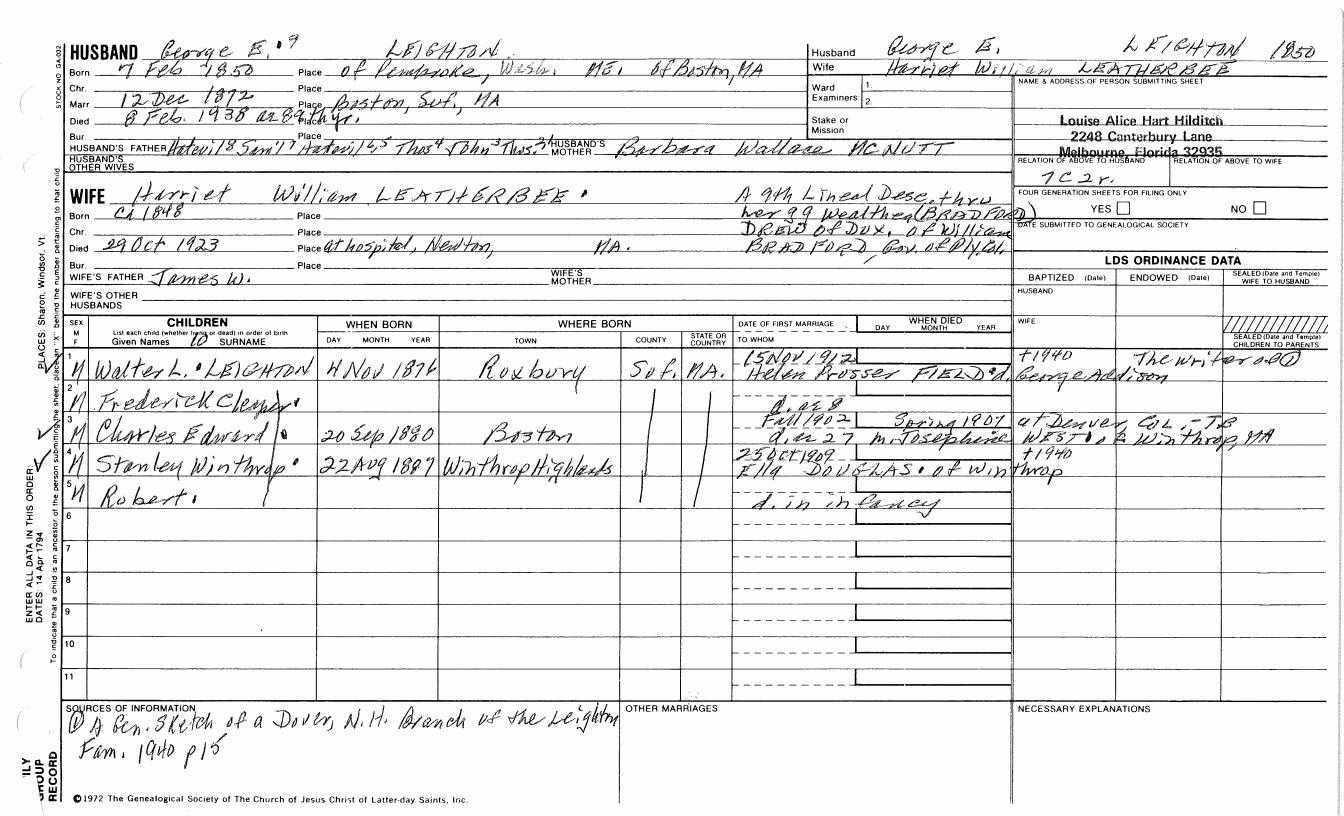 HUSBAND George E. 9 LEIGHTON
Born 7 Feb 1850 Place of Pembroke, Wash. ME. of Boston, MA
Chr. Place
Marr 12 Dec 1872 Place Boston, Suf., MA
Died 8 Feb. 1938 ae 89th yr. Place
Bur Place
HUSBAND'S FATHER Hatevil 8 Sam'l 7 Hatevil 6,5 Thos 4 John 3 Thos. 2,1 HUSBAND'S MOTHER Barbara Wallace McNUTT
HUSBAND'S OTHER WIVES
WIFE Harriet William LEATHERBEE
Born Ca 1848 Place
Chr. Place
Died 29 Oct 1923 Place at hospital, Newton, MA.
Bur. Place
A 9th Lineal Desc. thru
her gg Wealthea (BRADFORD)
DREW of Dux. of William
BRADFORD, Gov. of Ply. Col.
WIFE'S FATHER James W. WIFE'S MOTHER
WIFE'S OTHER HUSBANDS
Husband George E. LEIGHTON 1850
Wife Harriet William LEATHERBEE
Ward 1.
Examiners 2.
Stake or Mission
NAME & ADDRESS OF PERSON SUBMITTING SHEET
Louise Alice Hart Hilditch
2248 Canterbury Lane
Melbourne, Florida 32935
RELATION OF ABOVE TO HUSBAND RELATION OF ABOVE TO WIFE
7C2r.
FOUR GENERATION SHEETS FOR FILING ONLY
YES NO
DATE SUBMITTED TO GENEALOGICAL SOCIETY
LDS ORDINANCE DATA
BAPTIZED (Date) ENDOWED (Date) SEALED (Date and Temple) WIFE TO HUSBAND
HUSBAND
WIFE
SEALED (Date and Temple) CHILDREN TO PARENTS
SEX M F
CHILDREN WHEN BORN WHERE BORN DATE OF FIRST MARRIAGE WHEN DIED
List each child (whether living or dead) in order of birth
Given Names 10 SURNAME DAY MONTH YEAR TOWN COUNTY STATE OR COUNTRY TO WHOM DAY MONTH YEAR
1 M Walter L. LEIGHTON 4 Nov 1876 Roxbury Suf. MA. 15 Nov 1912 †1940 The writer of ①
Helen Prosser FIELD d. George Addison
2 M Frederick Cleaper d. ae 8
3 M Charles Edward 20 Sep 1880 Boston Fall 1902 Spring 1907 at Denver, Col. - TB
d. ae 27 m. Josephine WEST of Winthrop, MA
4 M Stanley Winthrop 22 Aug 1887 Winthrop Highlands 25 Oct 1909 †1940
Ella DOUGLAS of Winthrop
5 M Robert d. in infancy
6
7
8
9
10
11
SOURCES OF INFORMATION
① A Gen. Sketch of a Dover, N.H. Branch of the Leighton
Fam. 1940 p15
OTHER MARRIAGES
NECESSARY EXPLANATIONS
©1972 The Genealogical Society of The Church of Jesus Christ of Latter-day Saints, Inc.
STOCK NO. GA-002
PLACES: Sharon, Windsor, Vt.
ENTER ALL DATA IN THIS ORDER:
DATES 14 Apr 1794
To indicate that a child is an ancestor of the person submitting the sheet, place an "X" behind the number pertaining to that child
ILY
GROUP
RECORD